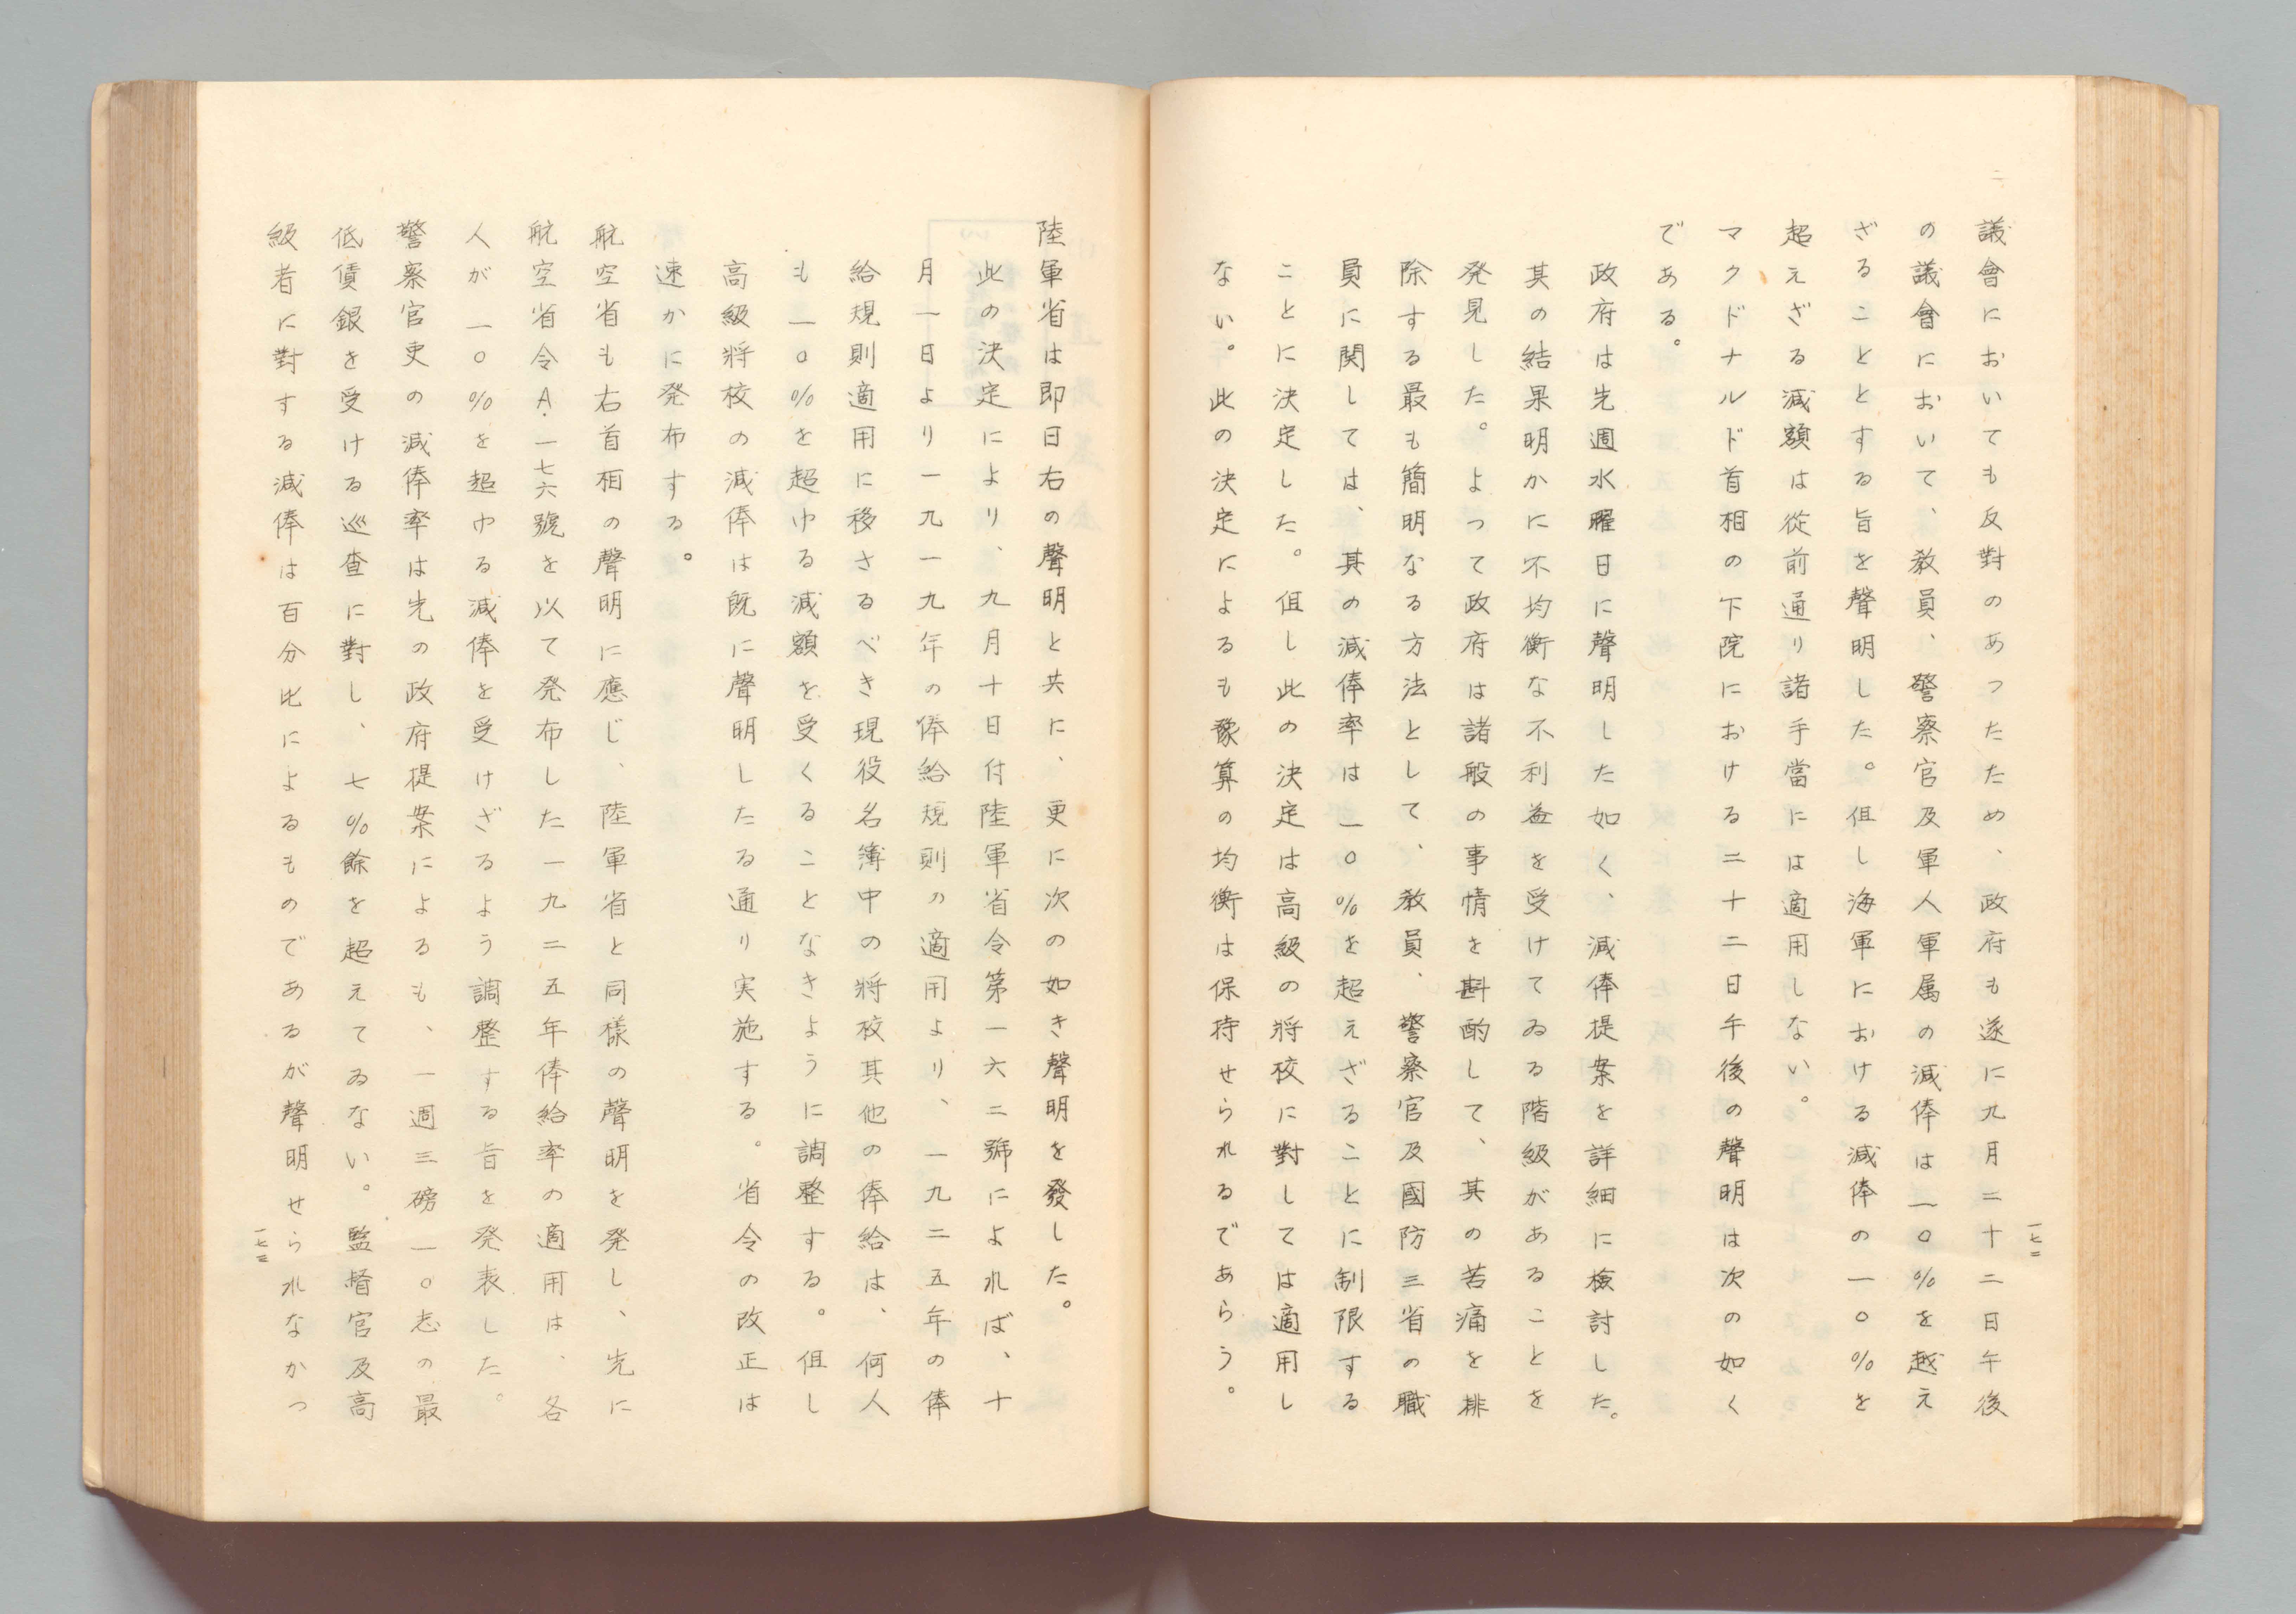 一七二
議會においても反對のあつたため、政府も遂に九月二十二日午後
の議會において、教員、警察官及軍人軍属の減俸は一〇%を越え
ざることとする旨を聲明した。但し海軍における減俸の一〇%を
超えざる減額は從前通り諸手當には適用しない。
マクドナルド首相の下院における二十二日午後の聲明は次の如く
である。
政府は先週水曜日に聲明した如く、減俸提案を詳細に檢討した。
其の結果明かに不均衡な不利益を受けてゐる階級があることを
発見した。よって政府は諸般の事情を斟酌して、其の苦痛を排
除する最も簡明なる方法として、教員、警察官及國防三省の職
員に関しては、其の減俸率は一〇%を超えざることに制限する
ことに決定した。但し此の決定は高級の將校に對しては適用し
ない。此の決定によるも豫算の均衡は保持せられるであらう。
陸軍省は即日右の聲明と共に、更に次の如き聲明を發した。
此の決定により、九月十日付陸軍省令第一六二號によれば、十
月一日より一九一九年の俸給規則の適用より、一九二五年の俸
給規則適用に移さるべき現役名簿中の將校其他の俸給は、何人
も一〇%を超ゆる減額を受くることなきように調整する。但し
高級將校の減俸は既に聲明したる通り実施する。省令の改正は
速かに発布する。
航空省も右首相の聲明に應じ、陸軍省と同樣の聲明を発し、先に
航空省令A.一七六號を以て発布した一九二五年俸給率の適用は、各
人が一〇%を超ゆる減俸を受けざるよう調整する旨を発表した。
警察官吏の減俸率は先の政府提案によるも、一週三磅一〇志の最
低賃銀を受ける巡査に對し、七%餘を超えてゐない。監督官及高
級者に對する減俸は百分比によるものであるが聲明せられなかつ
一七三